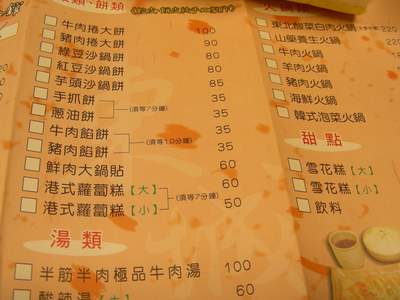 餅類
牛肉捲大餅 100
豬肉捲大餅 90
綠豆沙鍋餅 80
紅豆沙鍋餅 80
芋頭沙鍋餅 85
手抓餅 35
蔥油餅 35
(須等7分鐘)
牛肉餡餅 35
豬肉餡餅 35
(須等10分鐘)
鮮肉大鍋貼 60
港式蘿蔔糕【大】 60
港式蘿蔔糕【小】 50
(須等7分鐘)
湯類
半筋半肉極品牛肉湯 100
酸辣湯【大】 60
火鍋類
東北酸菜白肉火鍋 220
山藥養生火鍋
牛肉火鍋
羊肉火鍋
豬肉火鍋
海鮮火鍋
韓式泡菜火鍋
甜點
雪花糕【大】
雪花糕【小】
飲料